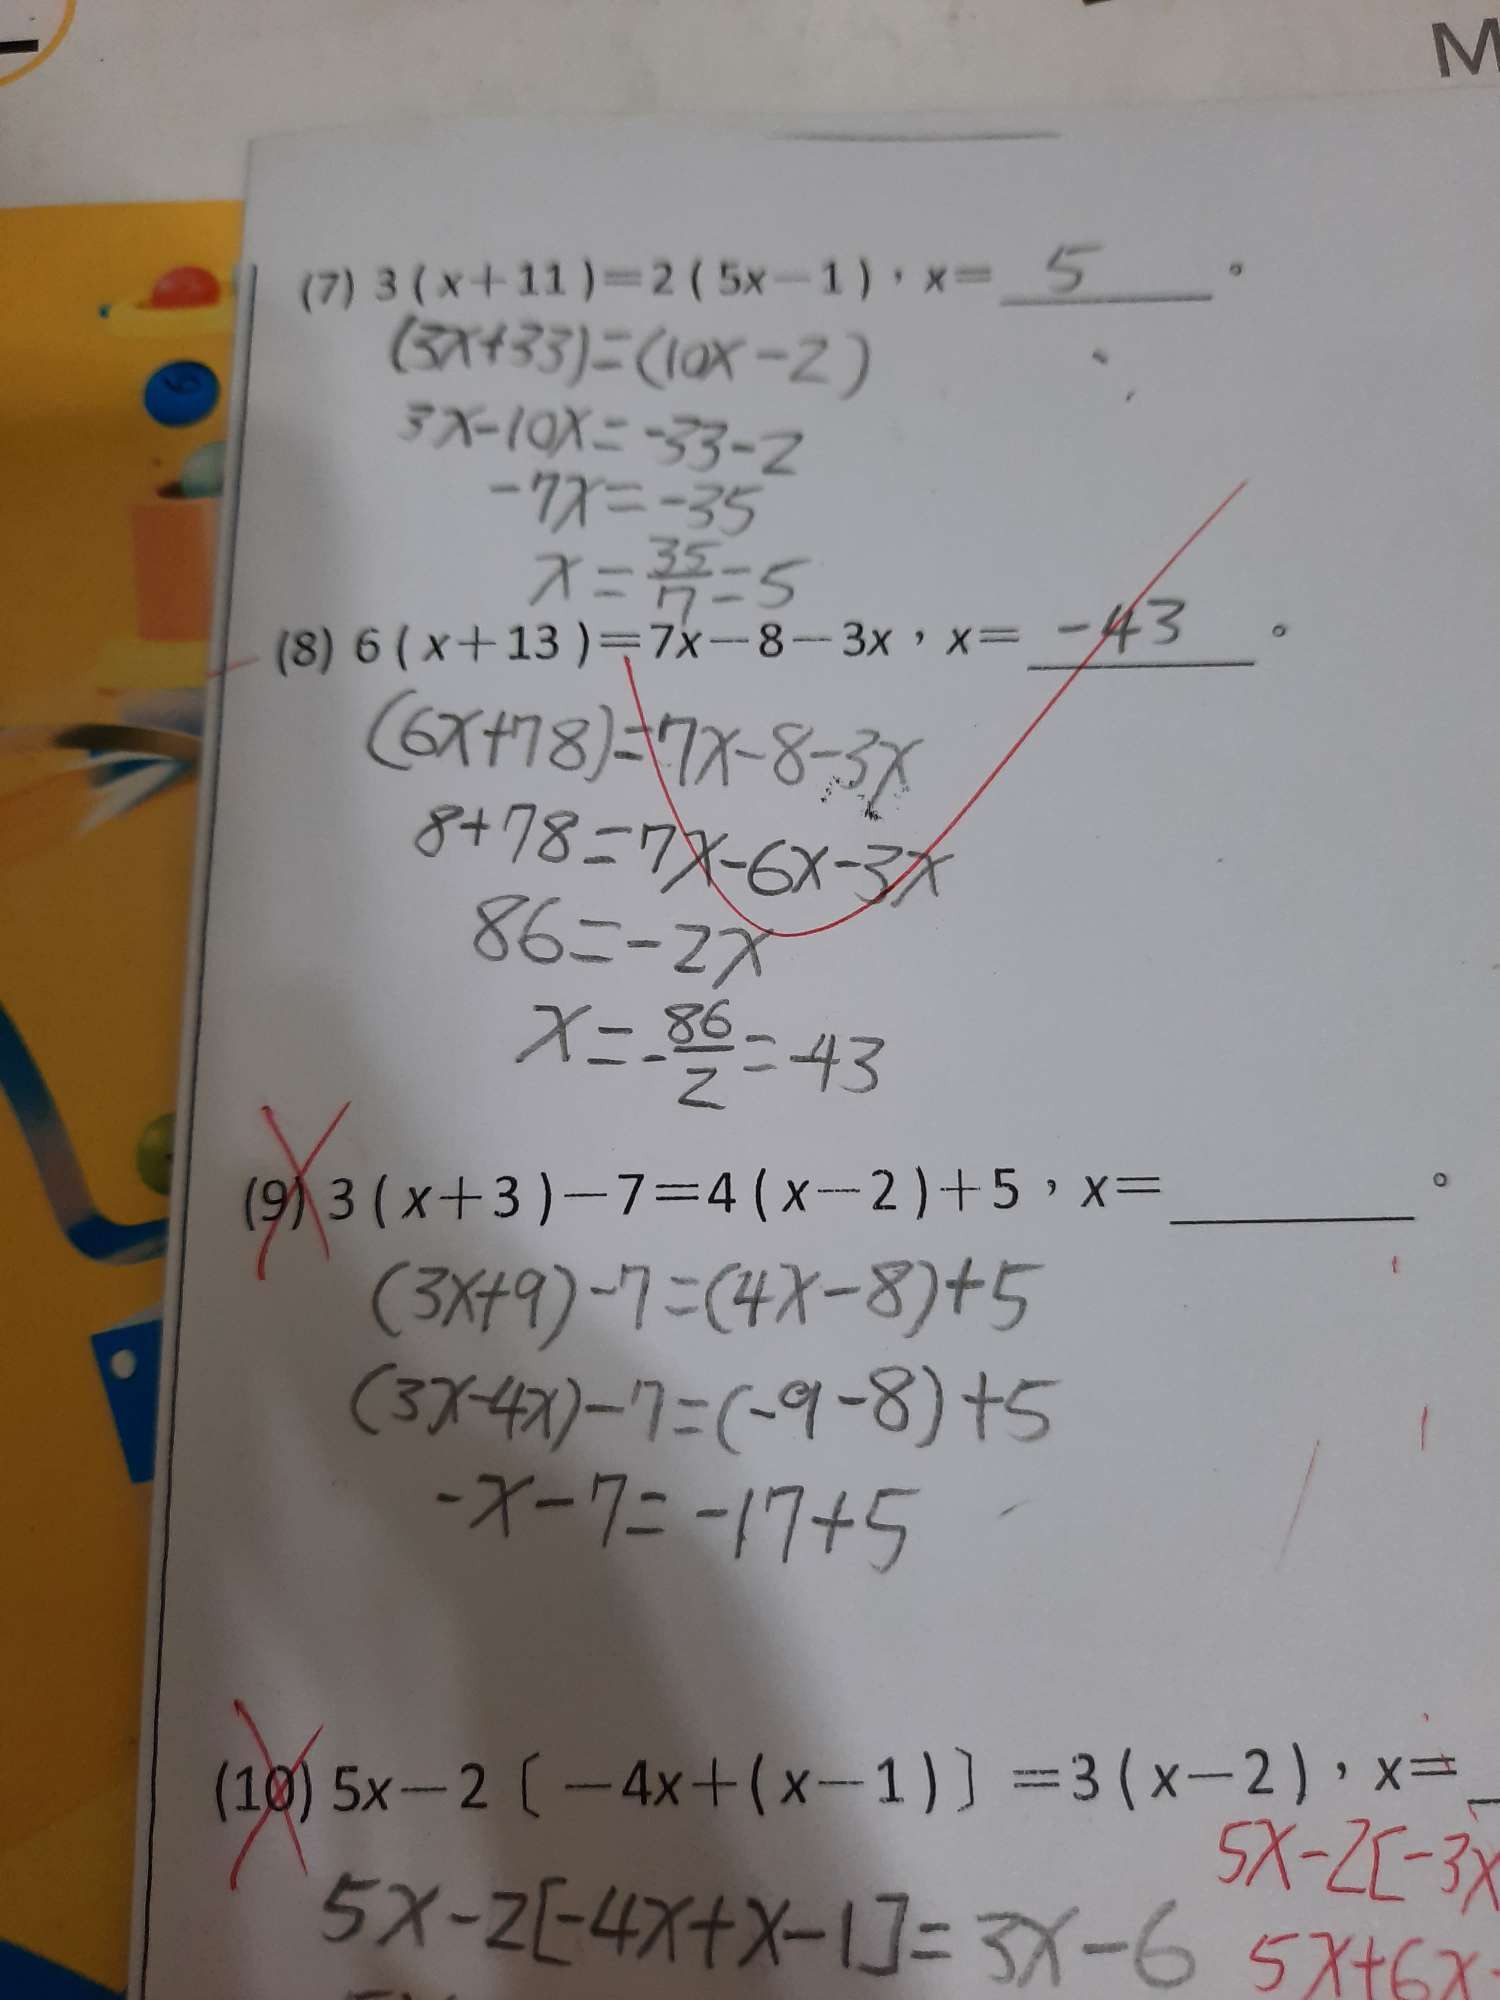 M
(7) 3(x+11)=2(5x-1)，x= 5 。
(3x+33)=(10x-2)
3x-10x=-33-2
-7x=-35
x=35/7=5
(8) 6(x+13)=7x-8-3x，x= -43 。
(6x+78)=7x-8-3x
8+78=7x-6x-3x
86=-2x
x=-86/2=-43
(9) 3(x+3)-7=4(x-2)+5，x=________。
(3x+9)-7=(4x-8)+5
(3x-4x)-7=(-9-8)+5
-x-7=-17+5
(10) 5x-2〔-4x+(x-1)〕=3(x-2)，x=
5x-2[-3x
5x-2[-4x+x-1]=3x-6
5x+6x